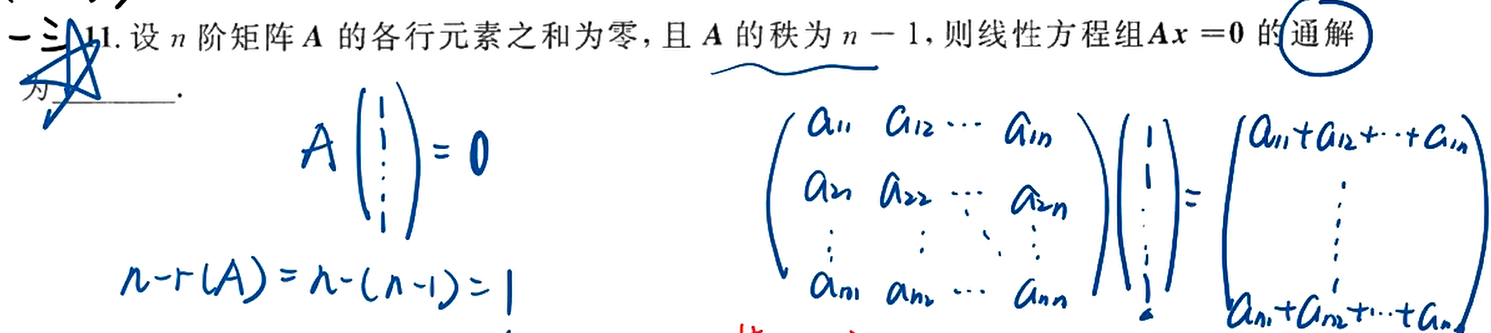 一三 11. 设 n 阶矩阵 A 的各行元素之和为零，且 A 的秩为 n − 1，则线性方程组Ax =0 的通解
为________.
A (1 1 ⋮ 1) = 0
n-r(A) = n-(n-1) = 1
(a11 a12 ⋯ a1n
a21 a22 ⋯ a2n
⋮ ⋮ ⋱ ⋮
an1 an2 ⋯ ann) (1 1 ⋮ 1) = (a11+a12+⋯+a1n
⋮
an1+an2+⋯+ann)